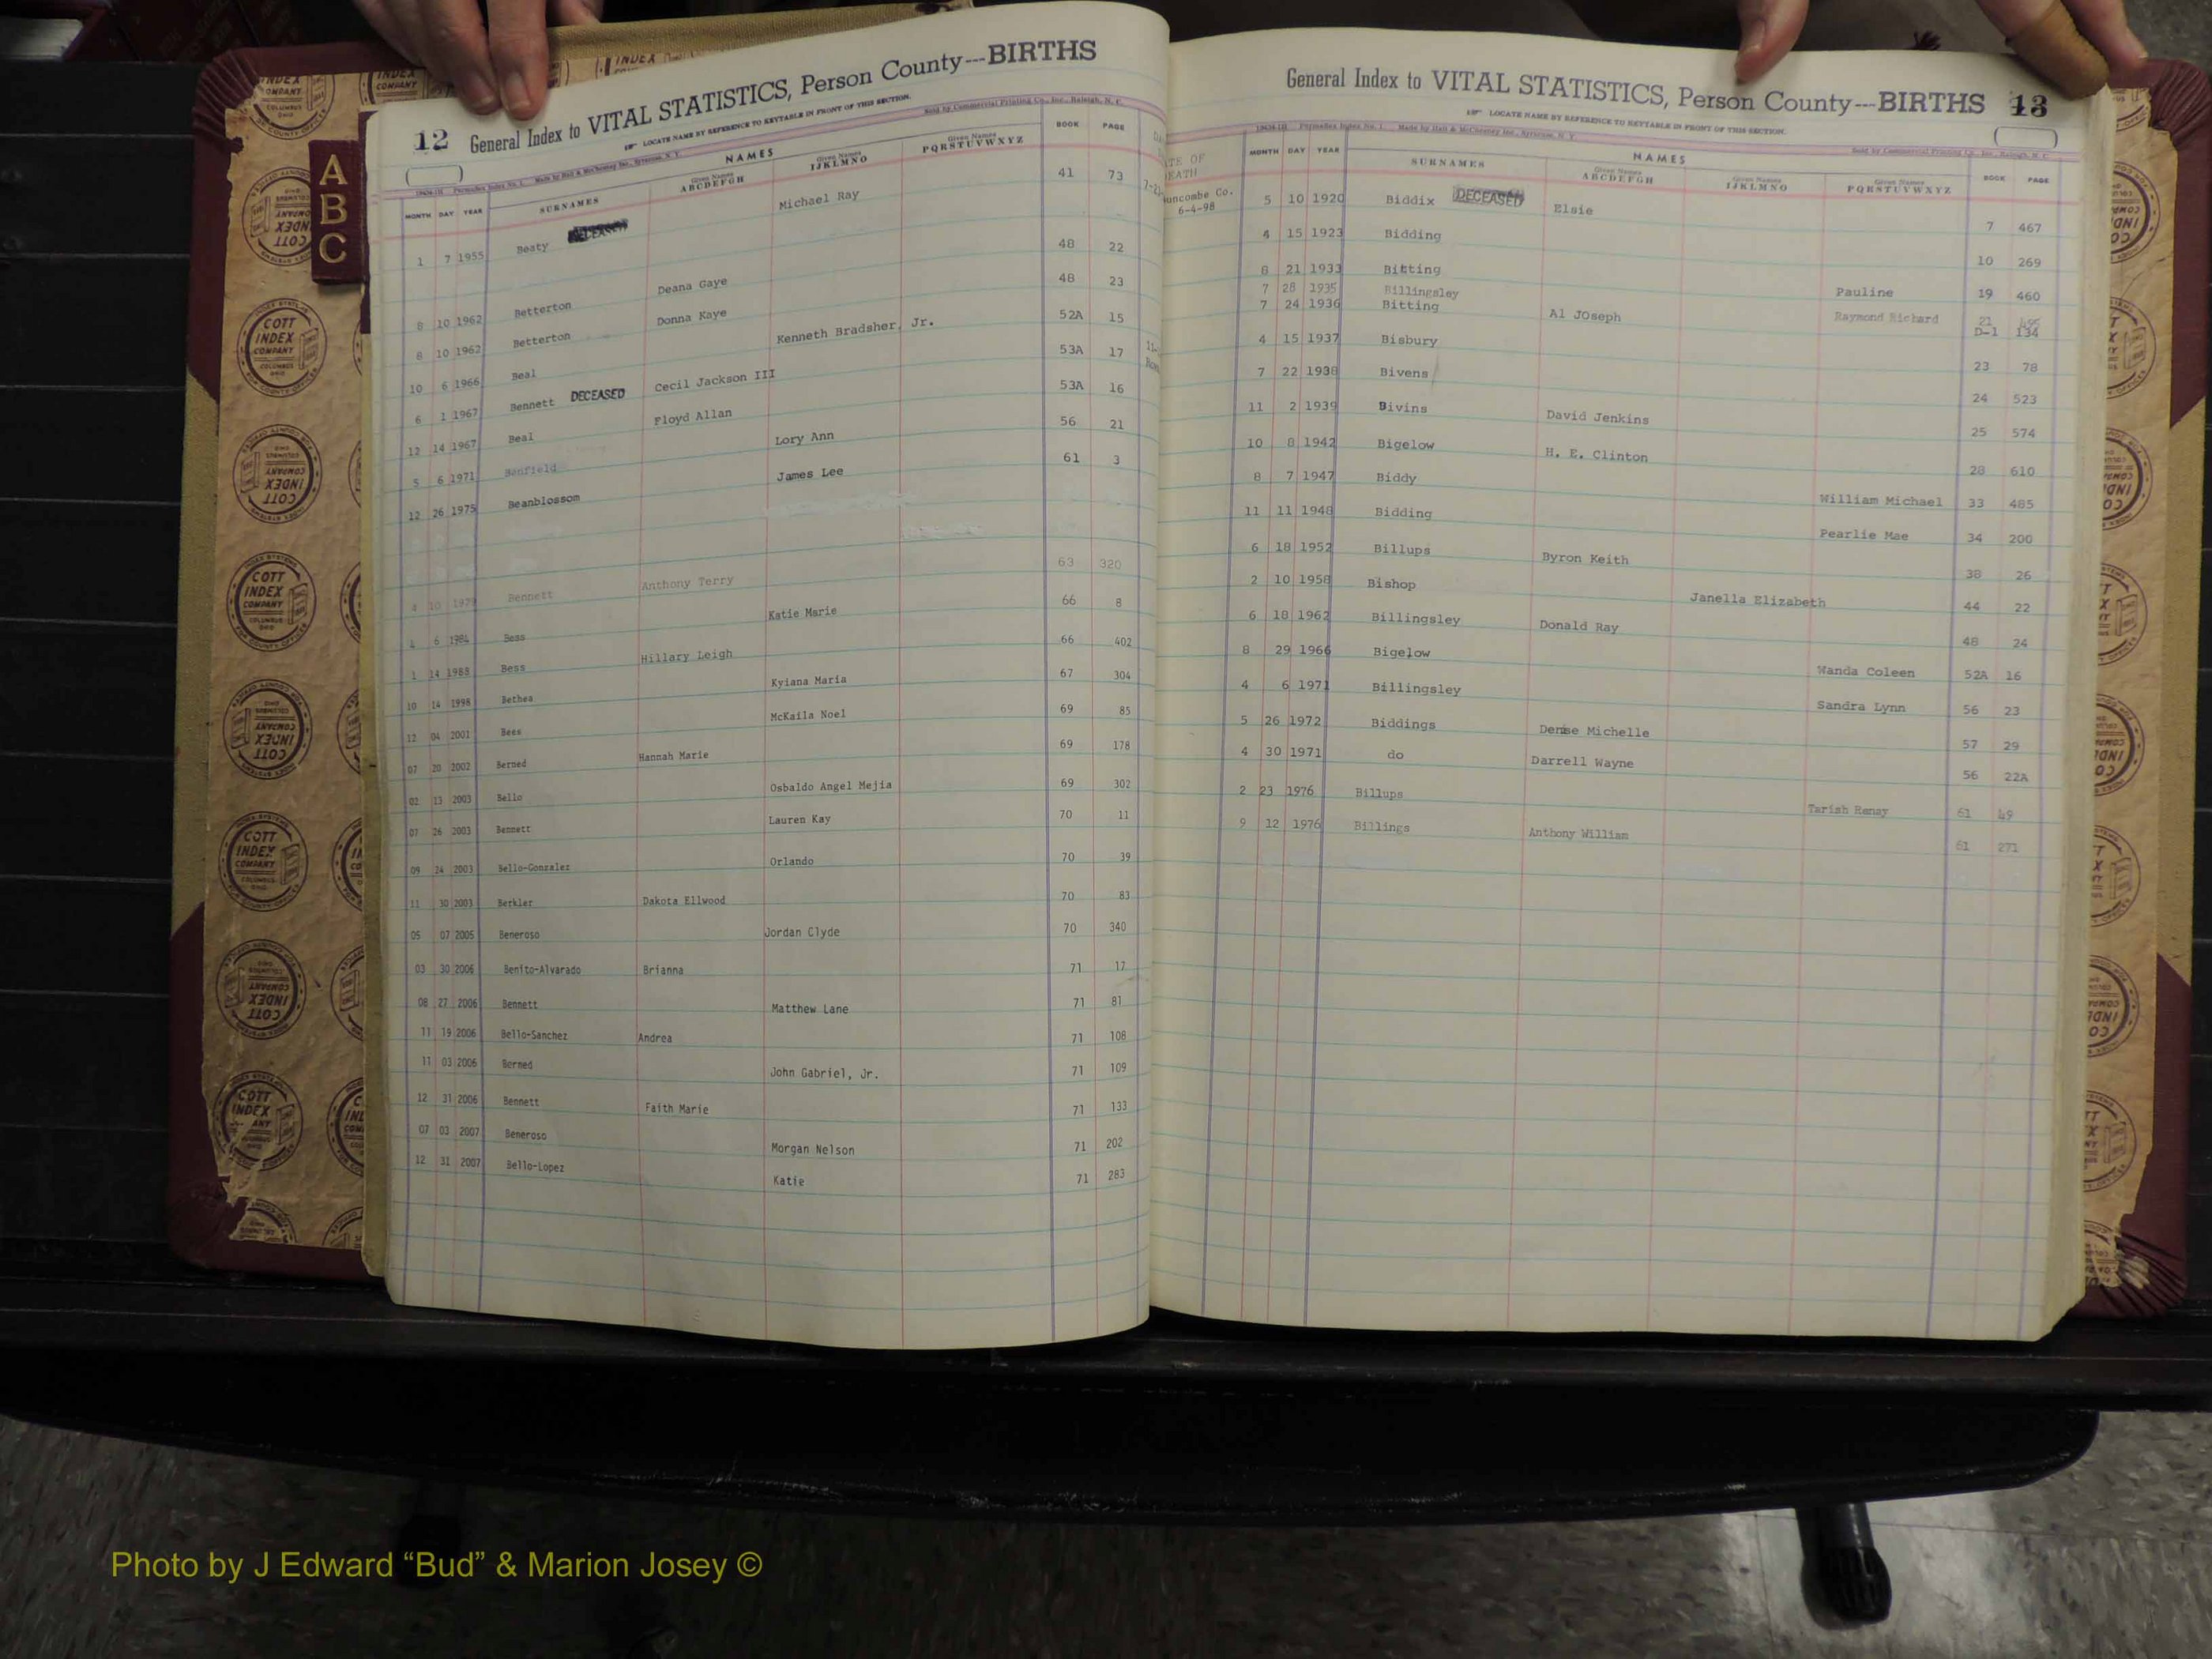 12 General Index to VITAL STATISTICS, Person County---BIRTHS
LOCATE NAME BY REFERENCE TO KEYTABLE IN FRONT OF THIS SECTION.
Sold by Commercial Printing Co., Inc., Raleigh, N. C.
MONTH DAY YEAR SURNAMES NAMES Given Names ABCDEFGH Given Names IJKLMNO Given Names PQRSTUVWXYZ BOOK PAGE
1 7 1955 Beaty DECEASED Michael Ray 41 73
8 10 1962 Betterton Deana Gaye 48 22
8 10 1962 Betterton Donna Kaye 48 23
10 6 1966 Beal Kenneth Bradsher, Jr. 52A 15
6 1 1967 Bennett DECEASED Cecil Jackson III 53A 17
12 14 1967 Beal Floyd Allan 53A 16
5 6 1971 Benfield Lory Ann 56 21
12 26 1975 Beanblossom James Lee 61 3
4 10 1979 Bennett Anthony Terry 63 320
6 1984 Bess Katie Marie 66 8
1 14 1985 Bess Hillary Leigh 66 402
10 14 1998 Bethea Kyiana Maria 67 304
12 04 2001 Bees McKaila Noel 69 85
07 20 2002 Berned Hannah Marie 69 178
02 13 2003 Bello Osbaldo Angel Mejia 69 302
07 26 2003 Bennett Lauren Kay 70 11
09 24 2003 Bello-Gonzalez Orlando 70 39
11 30 2003 Berkler Dakota Ellwood 70 83
05 07 2005 Beneroso Jordan Clyde 70 340
03 30 2006 Benito-Alvarado Brianna 71 17
08 27 2006 Bennett Matthew Lane 71 81
11 19 2006 Bello-Sanchez Andrea 71 108
11 03 2006 Berned John Gabriel, Jr. 71 109
12 31 2006 Bennett Faith Marie 71 133
07 03 2007 Beneroso Morgan Nelson 71 202
12 31 2007 Bello-Lopez Katie 71 283
General Index to VITAL STATISTICS, Person County---BIRTHS 13
LOCATE NAME BY REFERENCE TO KEYTABLE IN FRONT OF THIS SECTION.
Sold by Commercial Printing Co., Inc., Raleigh, N. C.
MONTH DAY YEAR SURNAMES NAMES Given Names ABCDEFGH Given Names IJKLMNO Given Names PQRSTUVWXYZ BOOK PAGE
uncombe Co.
6-4-98
5 10 1920 Biddix DECEASED Elsie 7 467
4 15 1923 Bidding 10 269
8 21 1933 Bitting Pauline 19 460
7 28 1935 Billingsley Raymond Richard 21
7 24 1936 Bitting Al JOseph D-1 134
4 15 1937 Bisbury 23 78
7 22 1938 Bivens 24 523
11 2 1939 Bivins David Jenkins 25 574
10 8 1942 Bigelow H. E. Clinton 28 610
8 7 1947 Biddy William Michael 33 485
11 11 1948 Bidding Pearlie Mae 34 200
6 18 1952 Billups Byron Keith 38 26
2 10 1958 Bishop Janella Elizabeth 44 22
6 18 1962 Billingsley Donald Ray 48 24
8 29 1966 Bigelow Wanda Coleen 52A 16
4 6 1971 Billingsley Sandra Lynn 56 23
5 26 1972 Biddings Denise Michelle 57 29
4 30 1971 do Darrell Wayne 56 22A
2 23 1976 Billups Tarish Renay 61 49
9 12 1976 Billings Anthony William 61 271
A
B
C
COTT INDEX COMPANY
Photo by J Edward “Bud” & Marion Josey ©